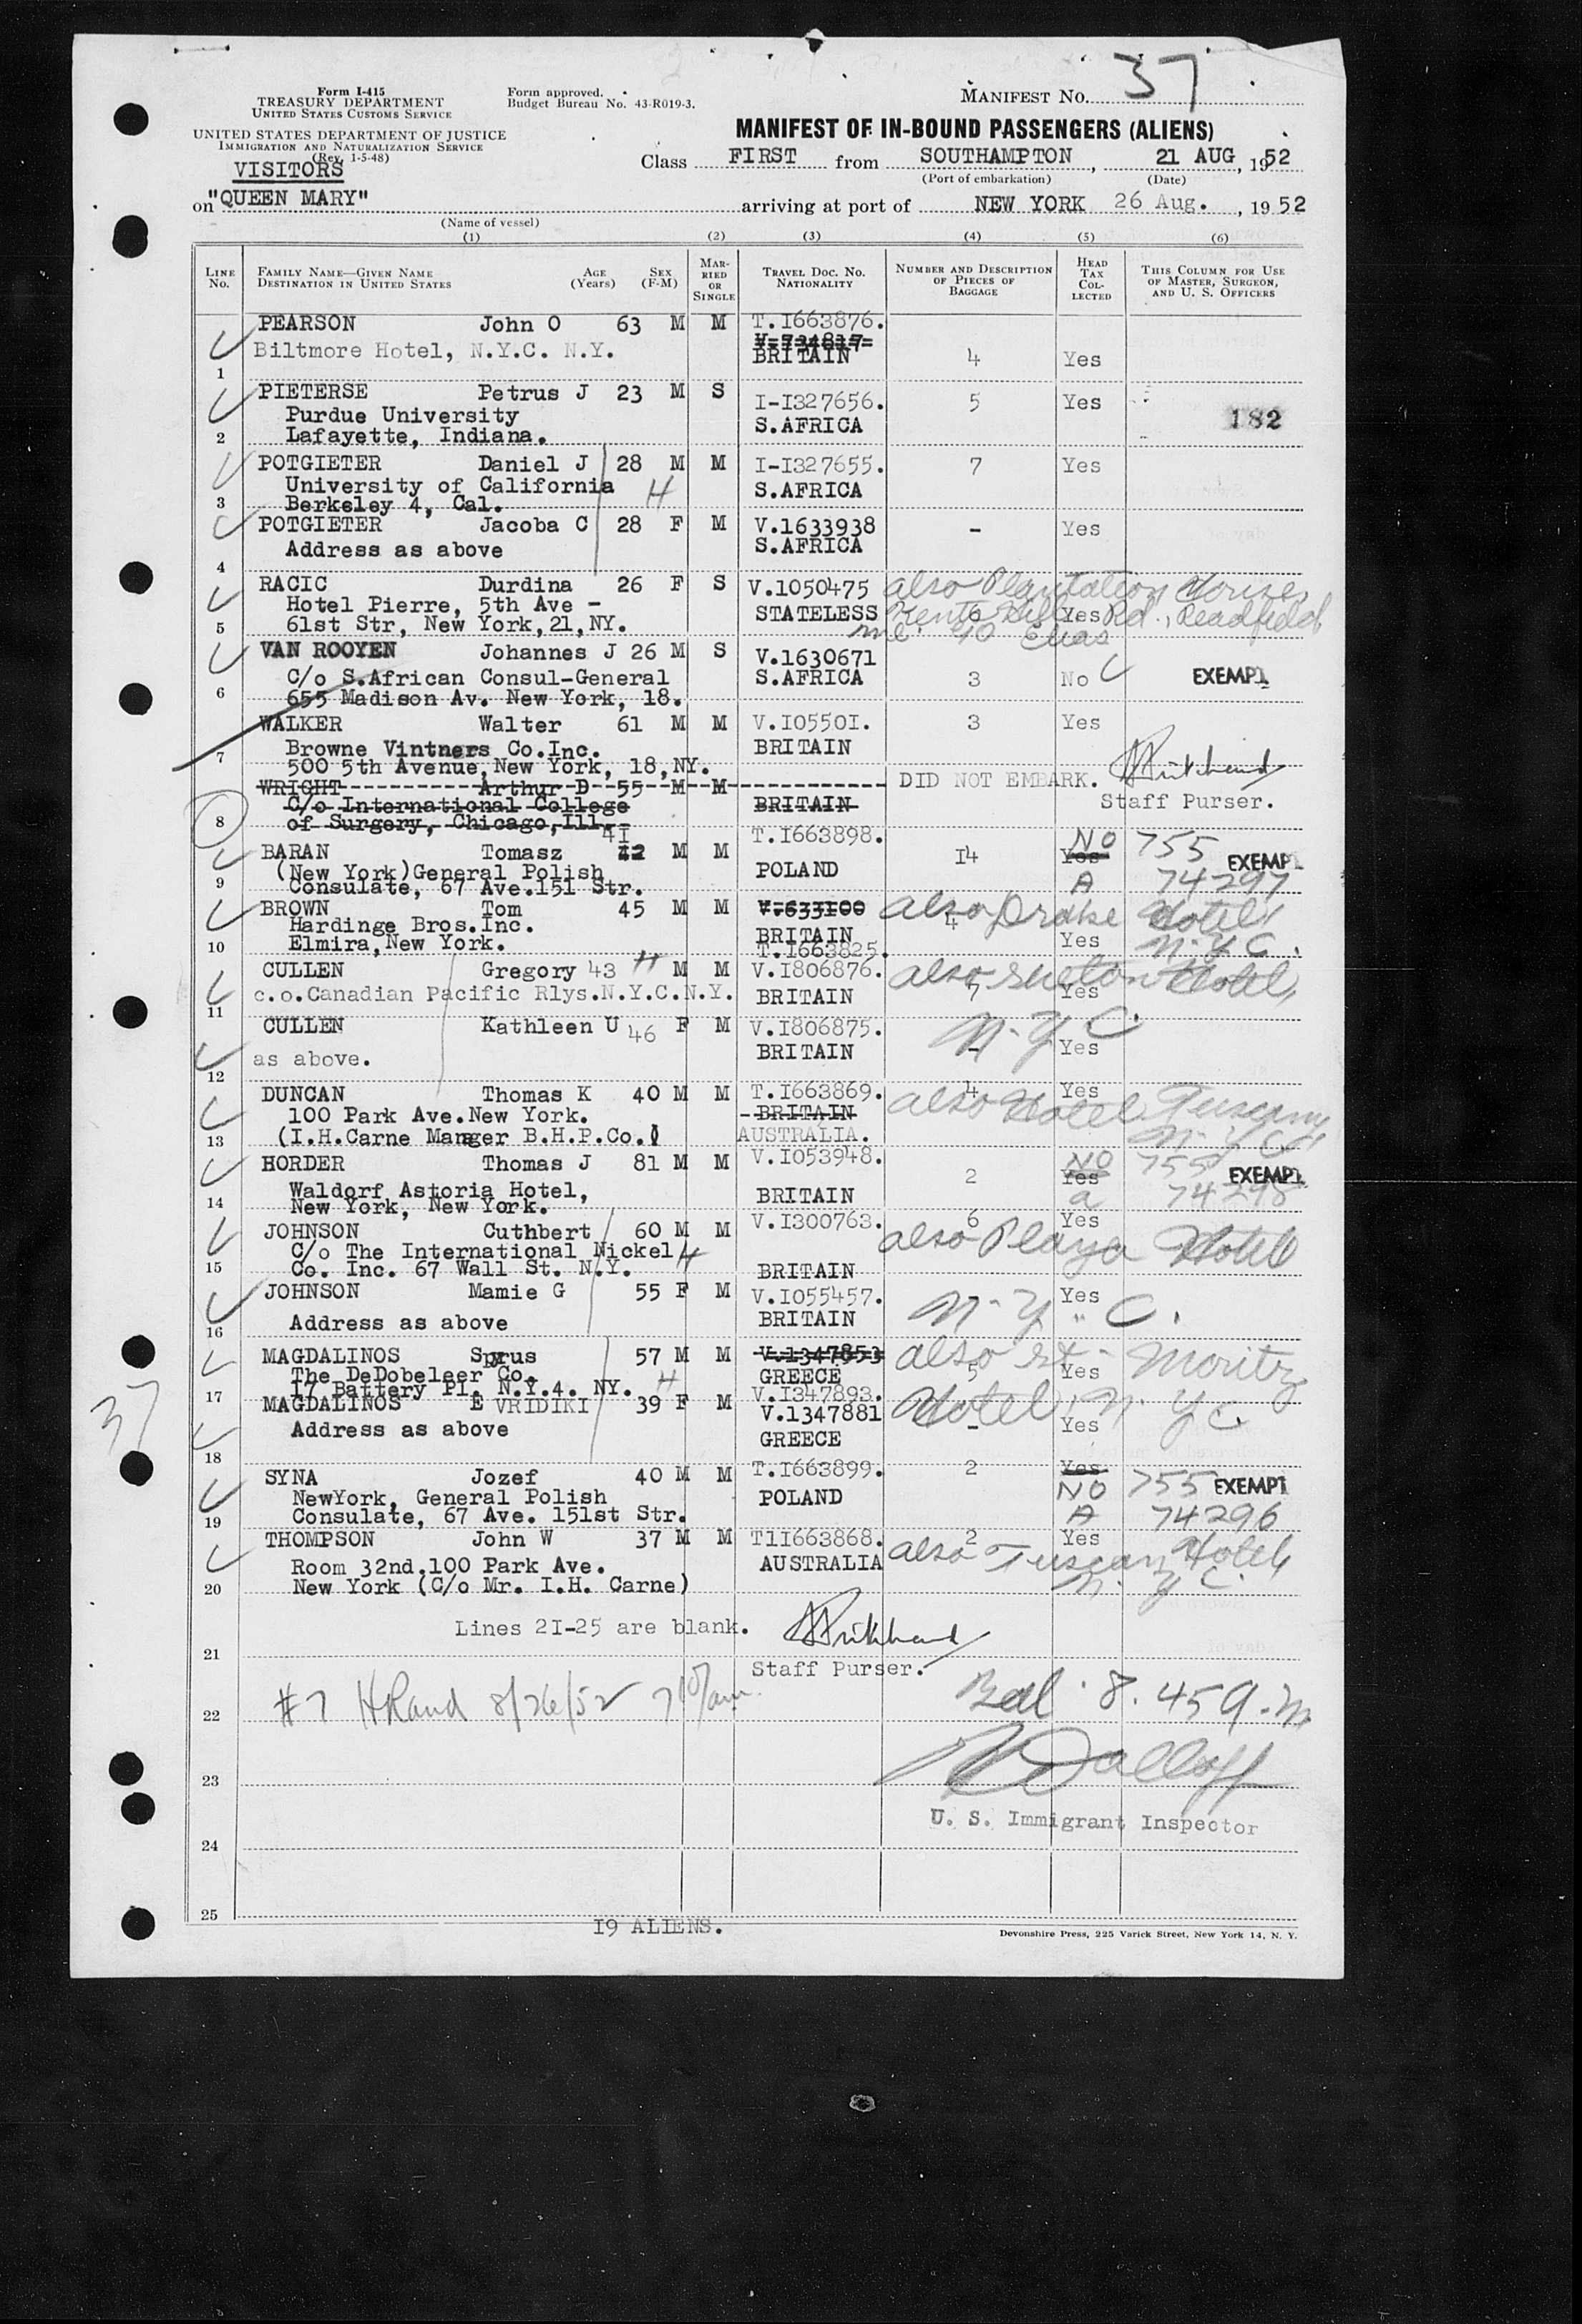 37
Form I-415
TREASURY DEPARTMENT
UNITED STATES CUSTOMS SERVICE
UNITED STATES DEPARTMENT OF JUSTICE
IMMIGRATION AND NATURALIZATION SERVICE
(Rev. 1-5-48)
Form approved.
Budget Bureau No. 43-R019-3.
MANIFEST NO. 37
MANIFEST OF IN-BOUND PASSENGERS (ALIENS)
VISITORS
Class FIRST from SOUTHAMPTON, 21 AUG, 1952
(Port of embarkation) (Date)
on "QUEEN MARY" arriving at port of NEW YORK 26 Aug., 1952
(Name of vessel)
(1) (2) (3) (4) (5) (6)
LINE NO. FAMILY NAME—GIVEN NAME DESTINATION IN UNITED STATES AGE (Years) SEX (F-M) MARRIED OR SINGLE TRAVEL DOC. NO. NATIONALITY NUMBER AND DESCRIPTION OF PIECES OF BAGGAGE HEAD TAX COLLECTED THIS COLUMN FOR USE OF MASTER, SURGEON, AND U. S. OFFICERS
PEARSON John O 63 M M T.I663876.
V.734817
Biltmore Hotel, N.Y.C. N.Y. BRITAIN 4 Yes
1
PIETERSE Petrus J 23 M S I-I327656. 5 Yes
Purdue University S.AFRICA 182
2 Lafayette, Indiana.
POTGIETER Daniel J 28 M M I-I327655. 7 Yes
University of California H S.AFRICA
3 Berkeley 4, Cal.
POTGIETER Jacoba C 28 F M V.1633938 - Yes
Address as above S.AFRICA
4
RACIC Durdina 26 F S V.1050475 also Plantation House,
Hotel Pierre, 5th Ave - STATELESS 6 Yes Rd., Readfield
5 61st Str, New York,21,NY. me. Elias
VAN ROOYEN Johannes J 26 M S V.1630671
C/o S.African Consul-General S.AFRICA 3 No EXEMPT
6 655 Madison Av. New York, 18.
WALKER Walter 61 M M V.I0550I. 3 Yes
Browne Vintners Co.Inc. BRITAIN
7 500 5th Avenue,New York, 18,NY.
WRIGHT Arthur D 55 M M DID NOT EMBARK.
C/o International College BRITAIN Staff Purser.
8 of Surgery, Chicago,Ill.
BARAN Tomasz 42 4I M M T.I663898. I4 Yes NO 755 EXEMPT
(New York)General Polish POLAND
9 Consulate, 67 Ave.151 Str. A 74297
BROWN Tom 45 M M V.633I00 also Drake Hotel
Hardinge Bros.Inc. BRITAIN 4
10 Elmira,New York. T.I663825. Yes N.Y.C.
CULLEN Gregory 43 H M M V.I806876. also Hotel,
c.o.Canadian Pacific Rlys.N.Y.C.N.Y. BRITAIN 7 Yes
11
CULLEN Kathleen U 46 F M V.I806875. N.Y.C.
as above. BRITAIN - Yes
12
DUNCAN Thomas K 40 M M T.I663869. 4 Yes
100 Park Ave.New York. BRITAIN also Hotel Tuscany
13 (I.H.Carne Manager B.H.P.Co.) AUSTRALIA. N.Y.C.
HORDER Thomas J 81 M M V.I053948. 2 NO Yes 755 EXEMPT
Waldorf Astoria Hotel, BRITAIN a 74298
14 New York, New York.
JOHNSON Cuthbert 60 M M V.I300763. 6 Yes
C/o The International Nickel H also Plaza Hotel
15 Co. Inc. 67 Wall St. N.Y. BRITAIN
JOHNSON Mamie G 55 F M V.I055457. Yes
Address as above BRITAIN N.Y. " C.
16
MAGDALINOS Spyrus 57 M M V.1347853 also St. Moritz
The DeDobelaer Co. GREECE 5 Yes
17 17 Battery Pl. N.Y.4. NY. H V.I347893.
MAGDALINOS E VRIDIKI 39 F M V.1347881 Hotel, N.Y.C.
Address as above GREECE - Yes
18
SYNA Jozef 40 M M T.I663899. 2 Yes 755 EXEMPT
NewYork, General Polish POLAND NO
19 Consulate, 67 Ave. 151st Str. A 74296
THOMPSON John W 37 M M T1I663868. 2 Yes
Room 32nd.100 Park Ave. AUSTRALIA also Tuscany Hotel
20 New York (C/o Mr. I.H. Carne) N.Y.C.
Lines 2I-25 are blank.
21 Staff Purser.
22 #7 HRand 8/26/52 7 am. Bal 8.459.m
23
U. S. Immigrant Inspector
24
25
I9 ALIENS.
Devonshire Press, 225 Varick Street, New York 14, N. Y.
37